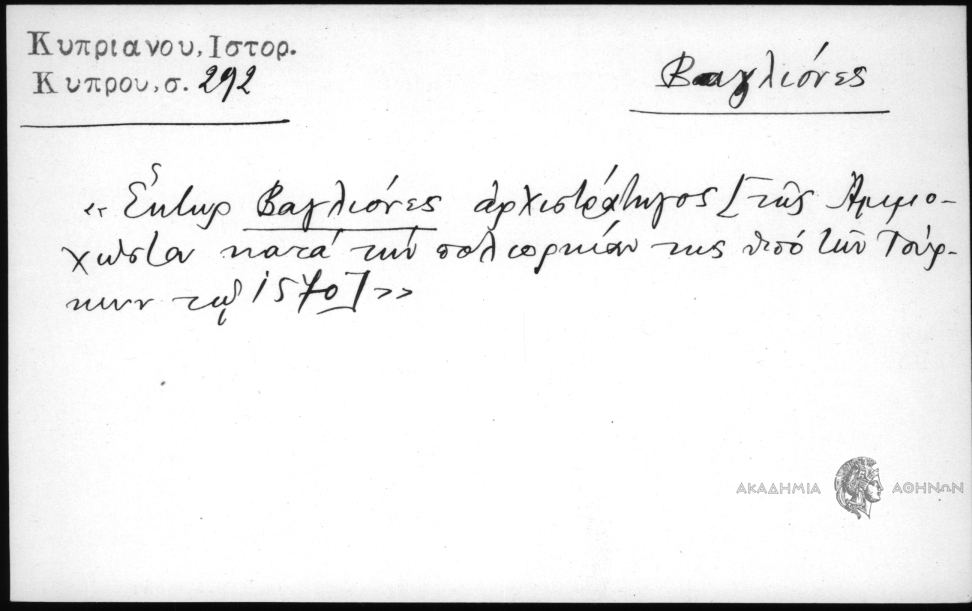 Κυπριανου, Ιστορ.
Κυπρου, σ. 292
Βαγλιόνες
«Ἕκτωρ Βαγλιόνες ἀρχιστράτηγος [τῆς Ἀμμο-
χώστου κατά τήν πολιορκίαν της ὑπό τῶν Τούρ-
κων τῷ 1570]»
ΑΚΑΔΗΜΙΑ ΑΘΗΝΩΝ